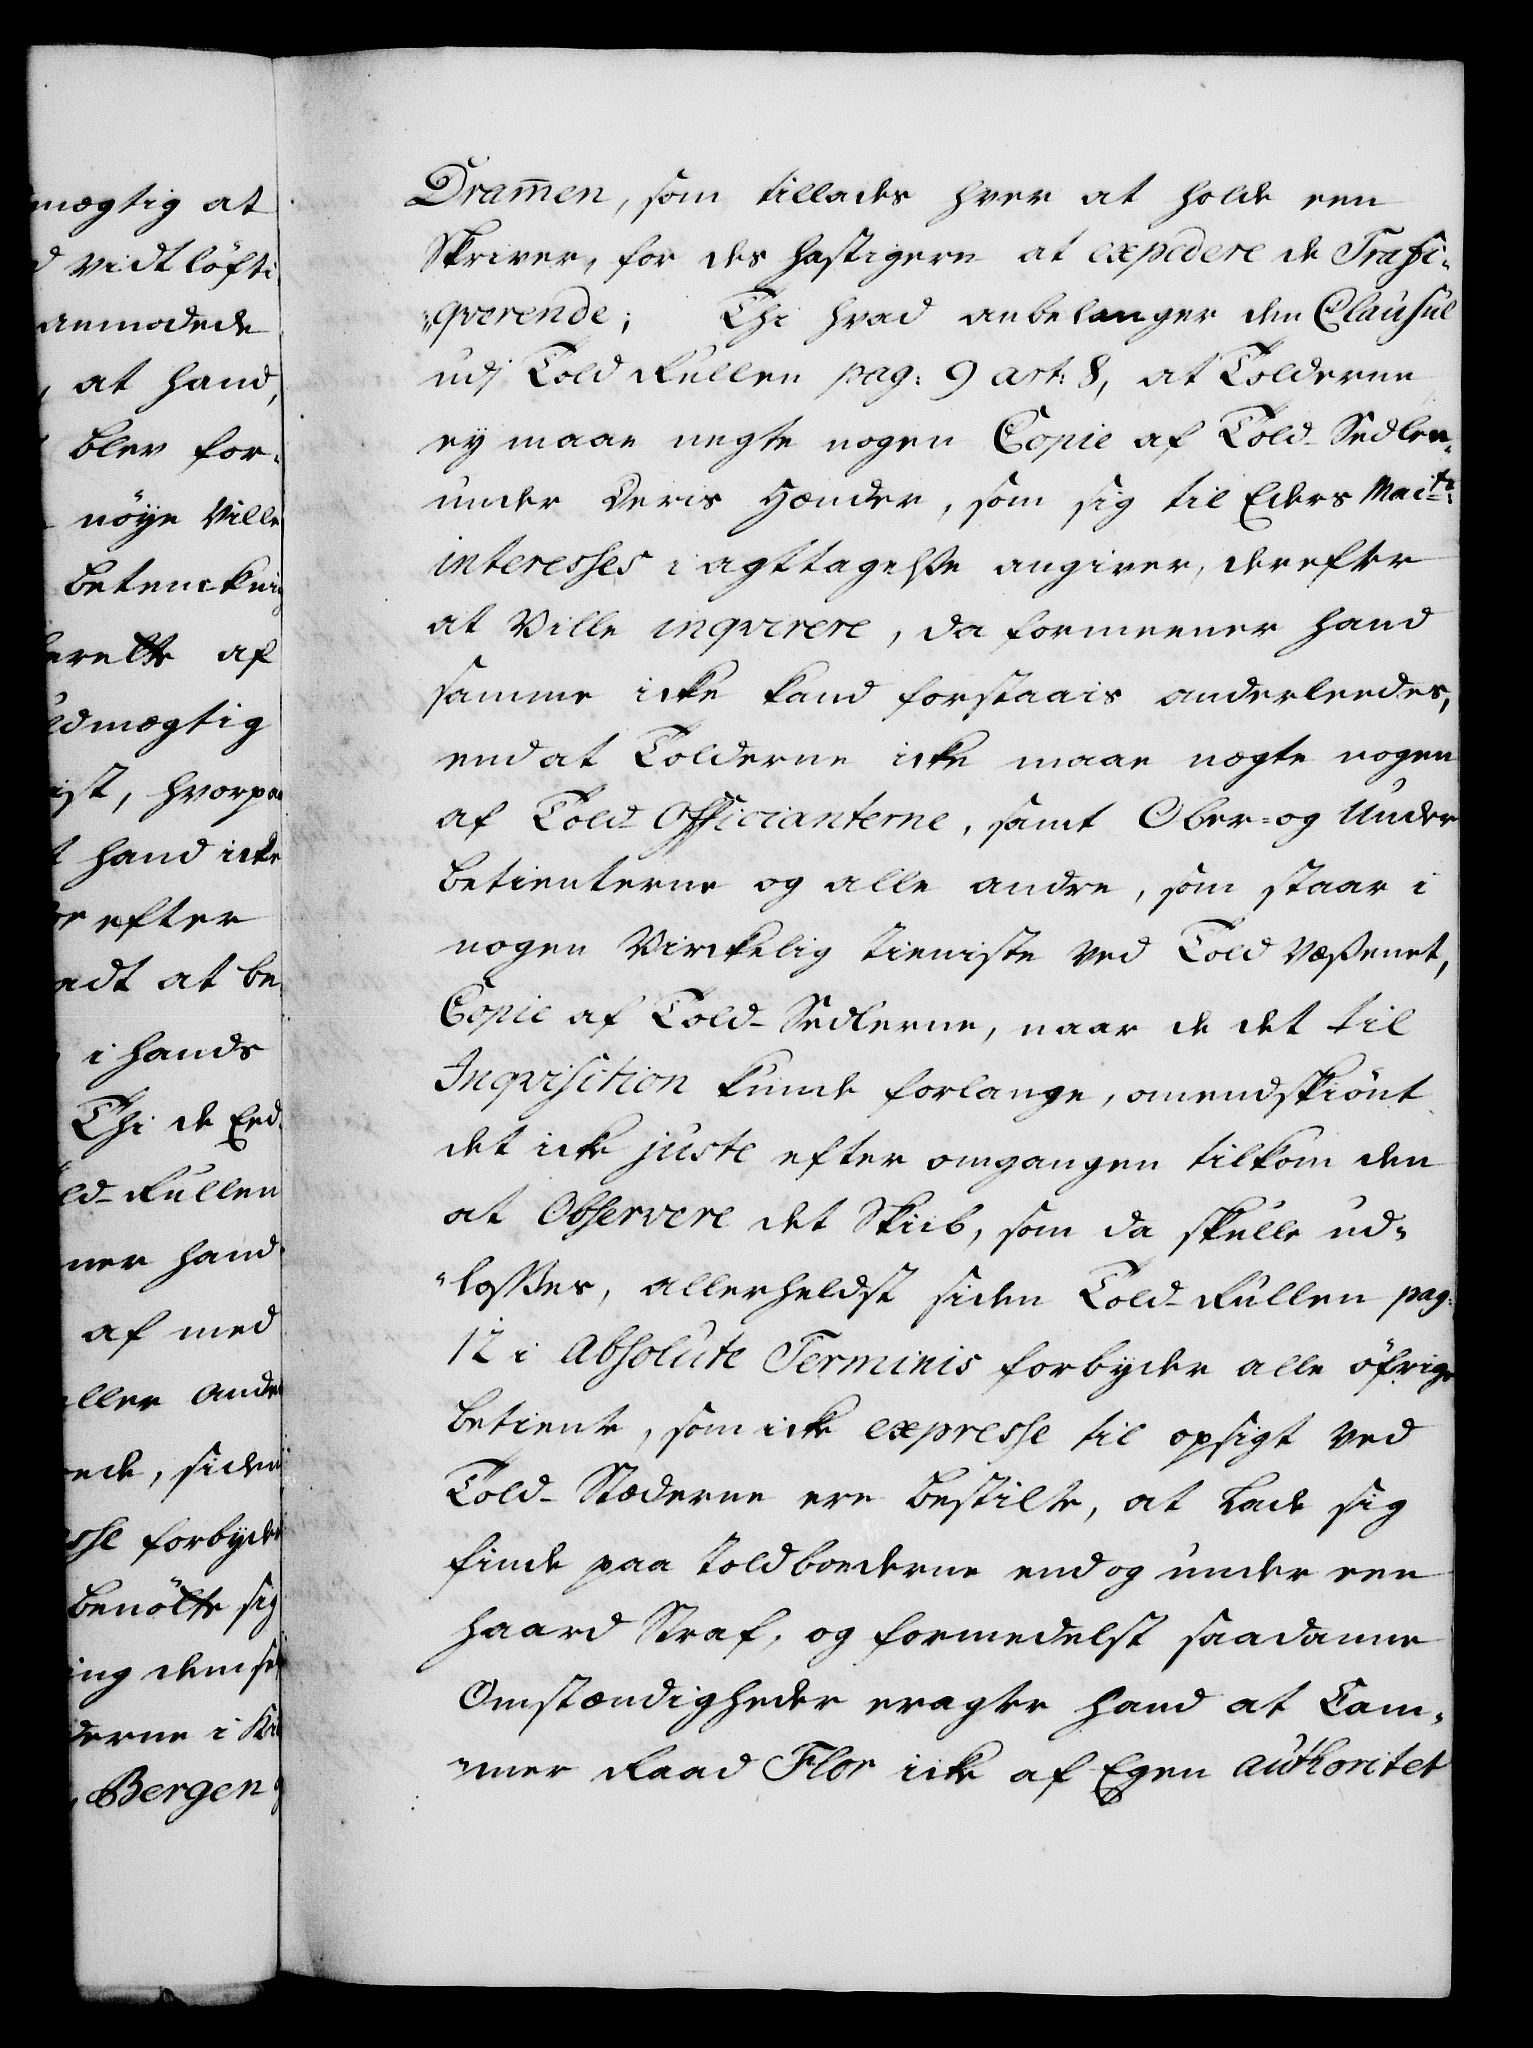 mægtig at
d vidtløfti-
anmodede
, at hand,
blev for-
nöye ville
betencknin
berette af
uldmægtig
ist, hvorpaa
t hand icke
efter
adt at be
i hands
Thi de End-
old-Rullen
ner hand
af med
ller andre
ede, siden
sse forbyder
benötte sig
ing dem se
derne i Kri
, Bergen
Dram̄en, som tillades hver at holde een
Skriver, for des hastigere at expedere de Trafi-
„qverende; Thi hvad anbelanger den Clausul
udj Told Rullen pag: 9 art: 8, at Tolderne
ey maae negte nogen Copie af Told-Sedler-
under deris Hænder, som sig til Eders Maits:
interesses i agttagelsse angiver, derefter
at ville inqvirere, da formeener hand
samme icke kand forstaais anderleedes,
end at Tolderne icke maae nægte nogen
af Told-Officianterne, samt Ober- og Under
betienterne og alle andre, som staar i
nogen virckelig tieniste ved Told væßenet,
Copie af Told-Sedlerne, naar de det til
Inqvisition kunde forlange, omendskiönt
det icke juste efter omgangen tilkom den
at Observere det Skib, som da skulle ud-
„loßes, allerheldst siden Told-Rullen pag:
12 i Absolute Terminis forbyder alle öfrige
betiente, som icke expresse til opsigt ved
Told-Stæderne ere bestilte, at lade sig
finde paa Toldboederne end og under een
haard Straf, og formedelst saadanne
Omstændigheder eragter hand at Cam-
„mer Raad Flor icke af Egen authoritet